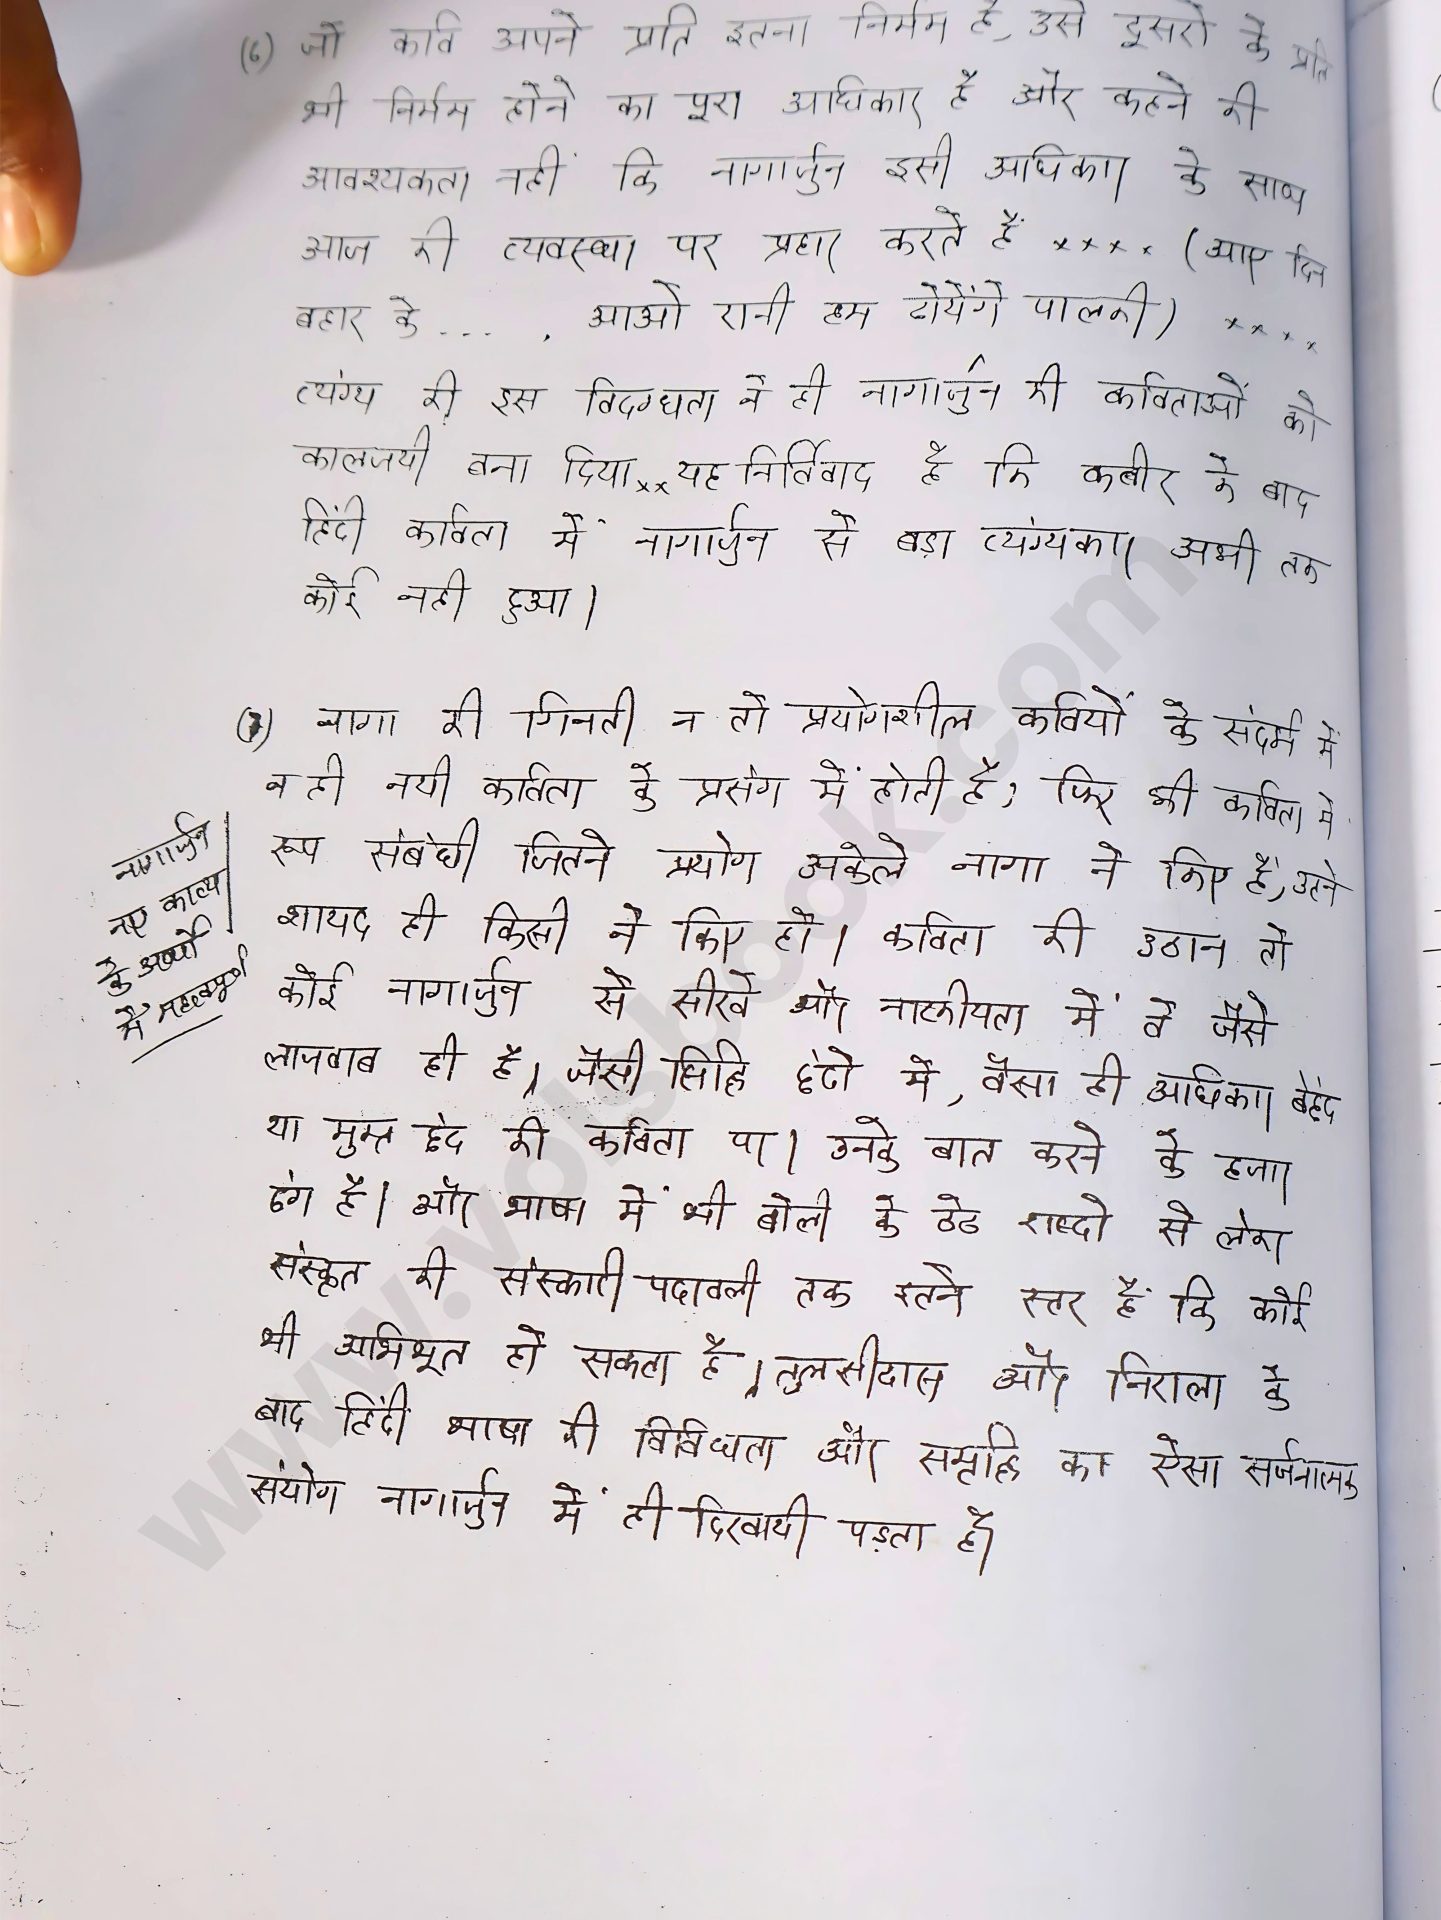 (6) जो कवि अपने प्रति इतना निर्मम है, उसे दूसरो के प्रति
भी निर्मम होने का पूरा अधिकार है और कहने की
आवश्यकता नहीं कि नागार्जुन इसी अधिकार के साथ
आज की व्यवस्था पर प्रहार करते हैं ×××× (आए दिन
बहार के .... , आओ रानी हम ढोयेंगे पालकी) ××××
व्यंग्य की इस विदग्धता ने ही नागार्जुन की कविताओं को
कालजयी बना दिया ×× यह निर्विवाद है कि कबीर के बाद
हिंदी कविता में नागार्जुन से बड़ा व्यंग्यकार अभी तक
कोई नही हुआ।
(7) नागा की गिनती न तो प्रयोगशील कवियों के संदर्भ में
न ही नयी कविता के प्रसंग में होती है; फिर भी कविता में
रूप संबंधी जितने प्रयोग अकेले नागा ने किए हैं, उतने
शायद ही किसी ने किए हों। कविता की उठान तो
कोई नागार्जुन से सीखे और नाटकीयता में वे जैसे
लाजवाब ही हैं। जैसी सिद्धि छंदो में, वैसा ही अधिकार बेछंद
या मुक्त छंद की कविता पर। उनके बात करने के हजार
ढंग है। और भाषा में भी बोली के ठेठ शब्दो से लेकर
संस्कृत की संस्कारी पदावली तक इतने स्तर हैं कि कोई
भी अभिभूत हो सकता है। तुलसीदास और निराला के
बाद हिंदी भाषा की विविधता और समृद्धि का ऐसा सर्जनात्मक
संयोग नागार्जुन में ही दिखायी पड़ता है।
नागार्जुन
नए काव्य
के अर्थों
में महत्वपूर्ण
www.volsbook.com